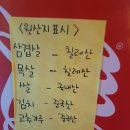 <원산지표시>
삼겹살 - 칠레산
목살 - 칠레산
쌀 - 국내산
김치 - 중국산
고추가루 - 중국산